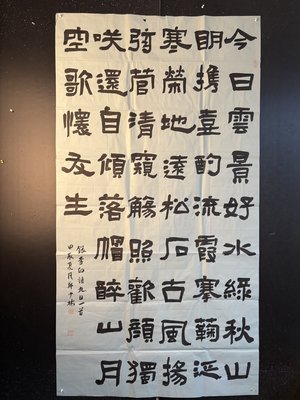 今日雲景好水綠秋山
明攜壺酌流霞搴鞠泛
寒榮地遠松石古風揚
弦管清窺觴照歡顏獨
咲還自傾落帽醉山月
空歌懷友生
錄李白詩九日一首
甲辰夏月